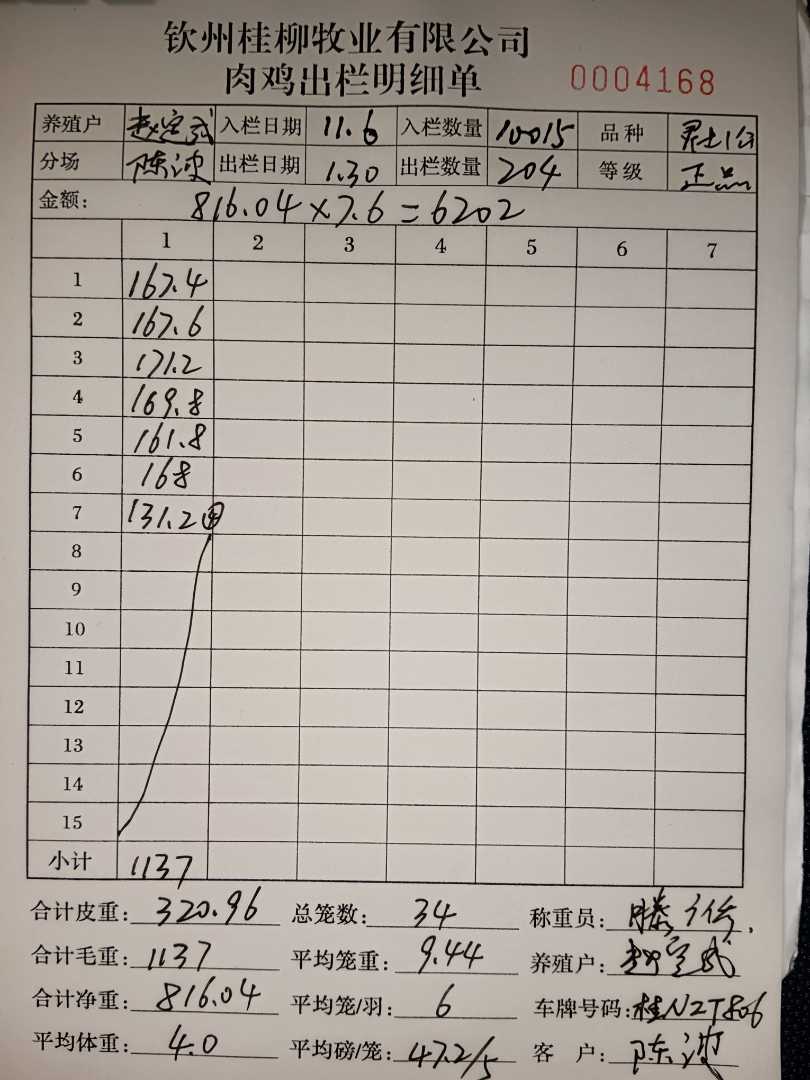 钦州桂柳牧业有限公司
肉鸡出栏明细单 0004168
养殖户 赵定武 入栏日期 11.6 入栏数量 10015 品种
分场 陈波 出栏日期 1.30 出栏数量 204 等级 正品
金额: 816.04×7.6=6202
1 2 3 4 5 6 7
1 167.4
2 167.6
3 171.2
4 169.8
5 161.8
6 168
7 131.2 ④
8
9
10
11
12
13
14
15
小计 1137
合计皮重: 320.96 总笼数: 34 称重员: 滕
合计毛重: 1137 平均笼重: 9.44 养殖户: 赵定武
合计净重: 816.04 平均笼/羽: 6 车牌号码: 桂N2T806
平均体重: 4.0 平均磅/笼: 47.2/5 客 户: 陈波